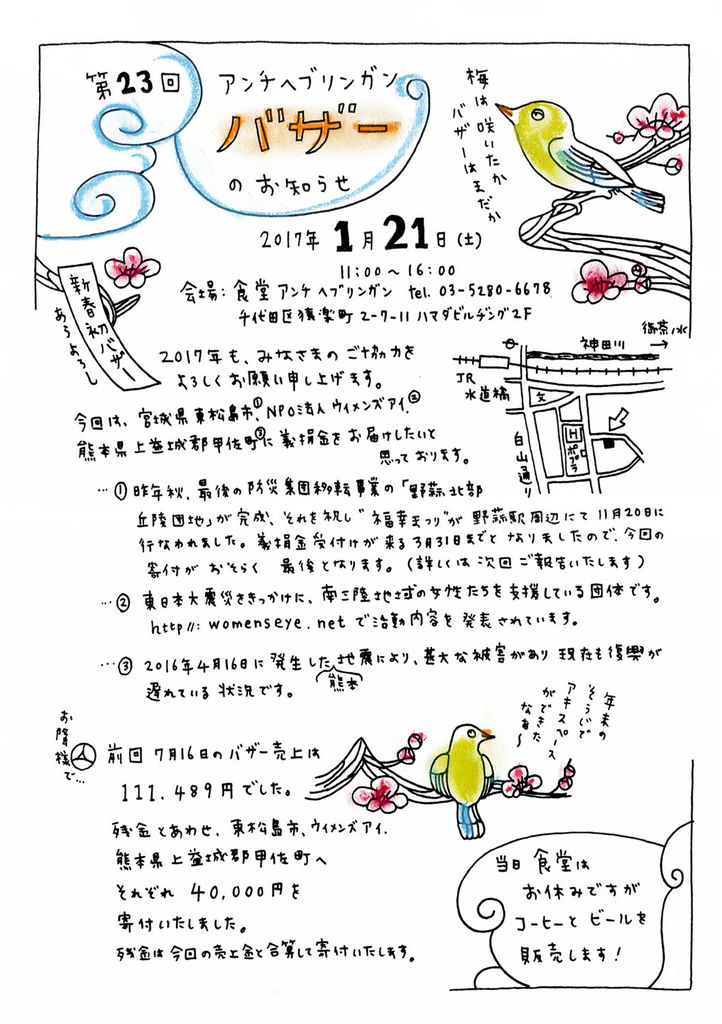 第23回
アンチヘブリンガン
バザー
のお知らせ
梅は咲いたか
バザーはまだか
2017年 1月21日(土)
11:00～16:00
会場:食堂 アンチヘブリンガン tel. 03-5280-6678
千代田区猿楽町2-7-11 ハマダビルヂング2F
新春初バザー
あらよろし
2017年も、みなさまのご協力を
よろしくお願い申し上げます。
今回は、宮城県東松島市①、NPO法人ウィメンズアイ②、
熊本県上益城郡甲佐町③に義捐金をお届けしたいと
思っております。
神田川
御茶ノ水
JR
水道橋
文
白山通り
H
ポプラ
…①昨年秋、最後の防災集団移転事業の「野蒜北部
丘陵団地」が完成、それを祝し"福幸まつり"が野蒜駅周辺にて11月20日に
行なわれました。義捐金受付けが来る3月31日までとなりましたので、今回の
寄付がおそらく 最後となります。(詳しくは次回ご報告いたします)
…②東日本大震災をきっかけに、南三陸地域の女性たちを支援している団体です。
http//: womenseye.net で活動内容を発表されています。
…③2016年4月16日に発生した熊本地震により、甚大な被害があり現在も復興が
遅れている状況です。
お陰様で…
前回 7月16日のバザー売上は
111.489円でした。
年末の
そうじで
アキスペース
ができた
なぁ～
残金とあわせ、東松島市、ウィメンズアイ、
熊本県上益城郡甲佐町へ
それぞれ 40,000円を
寄付いたしました。
残金は今回の売上金と合算して寄付いたします。
当日 食堂は
お休みですが
コーヒーとビールを
販売します!